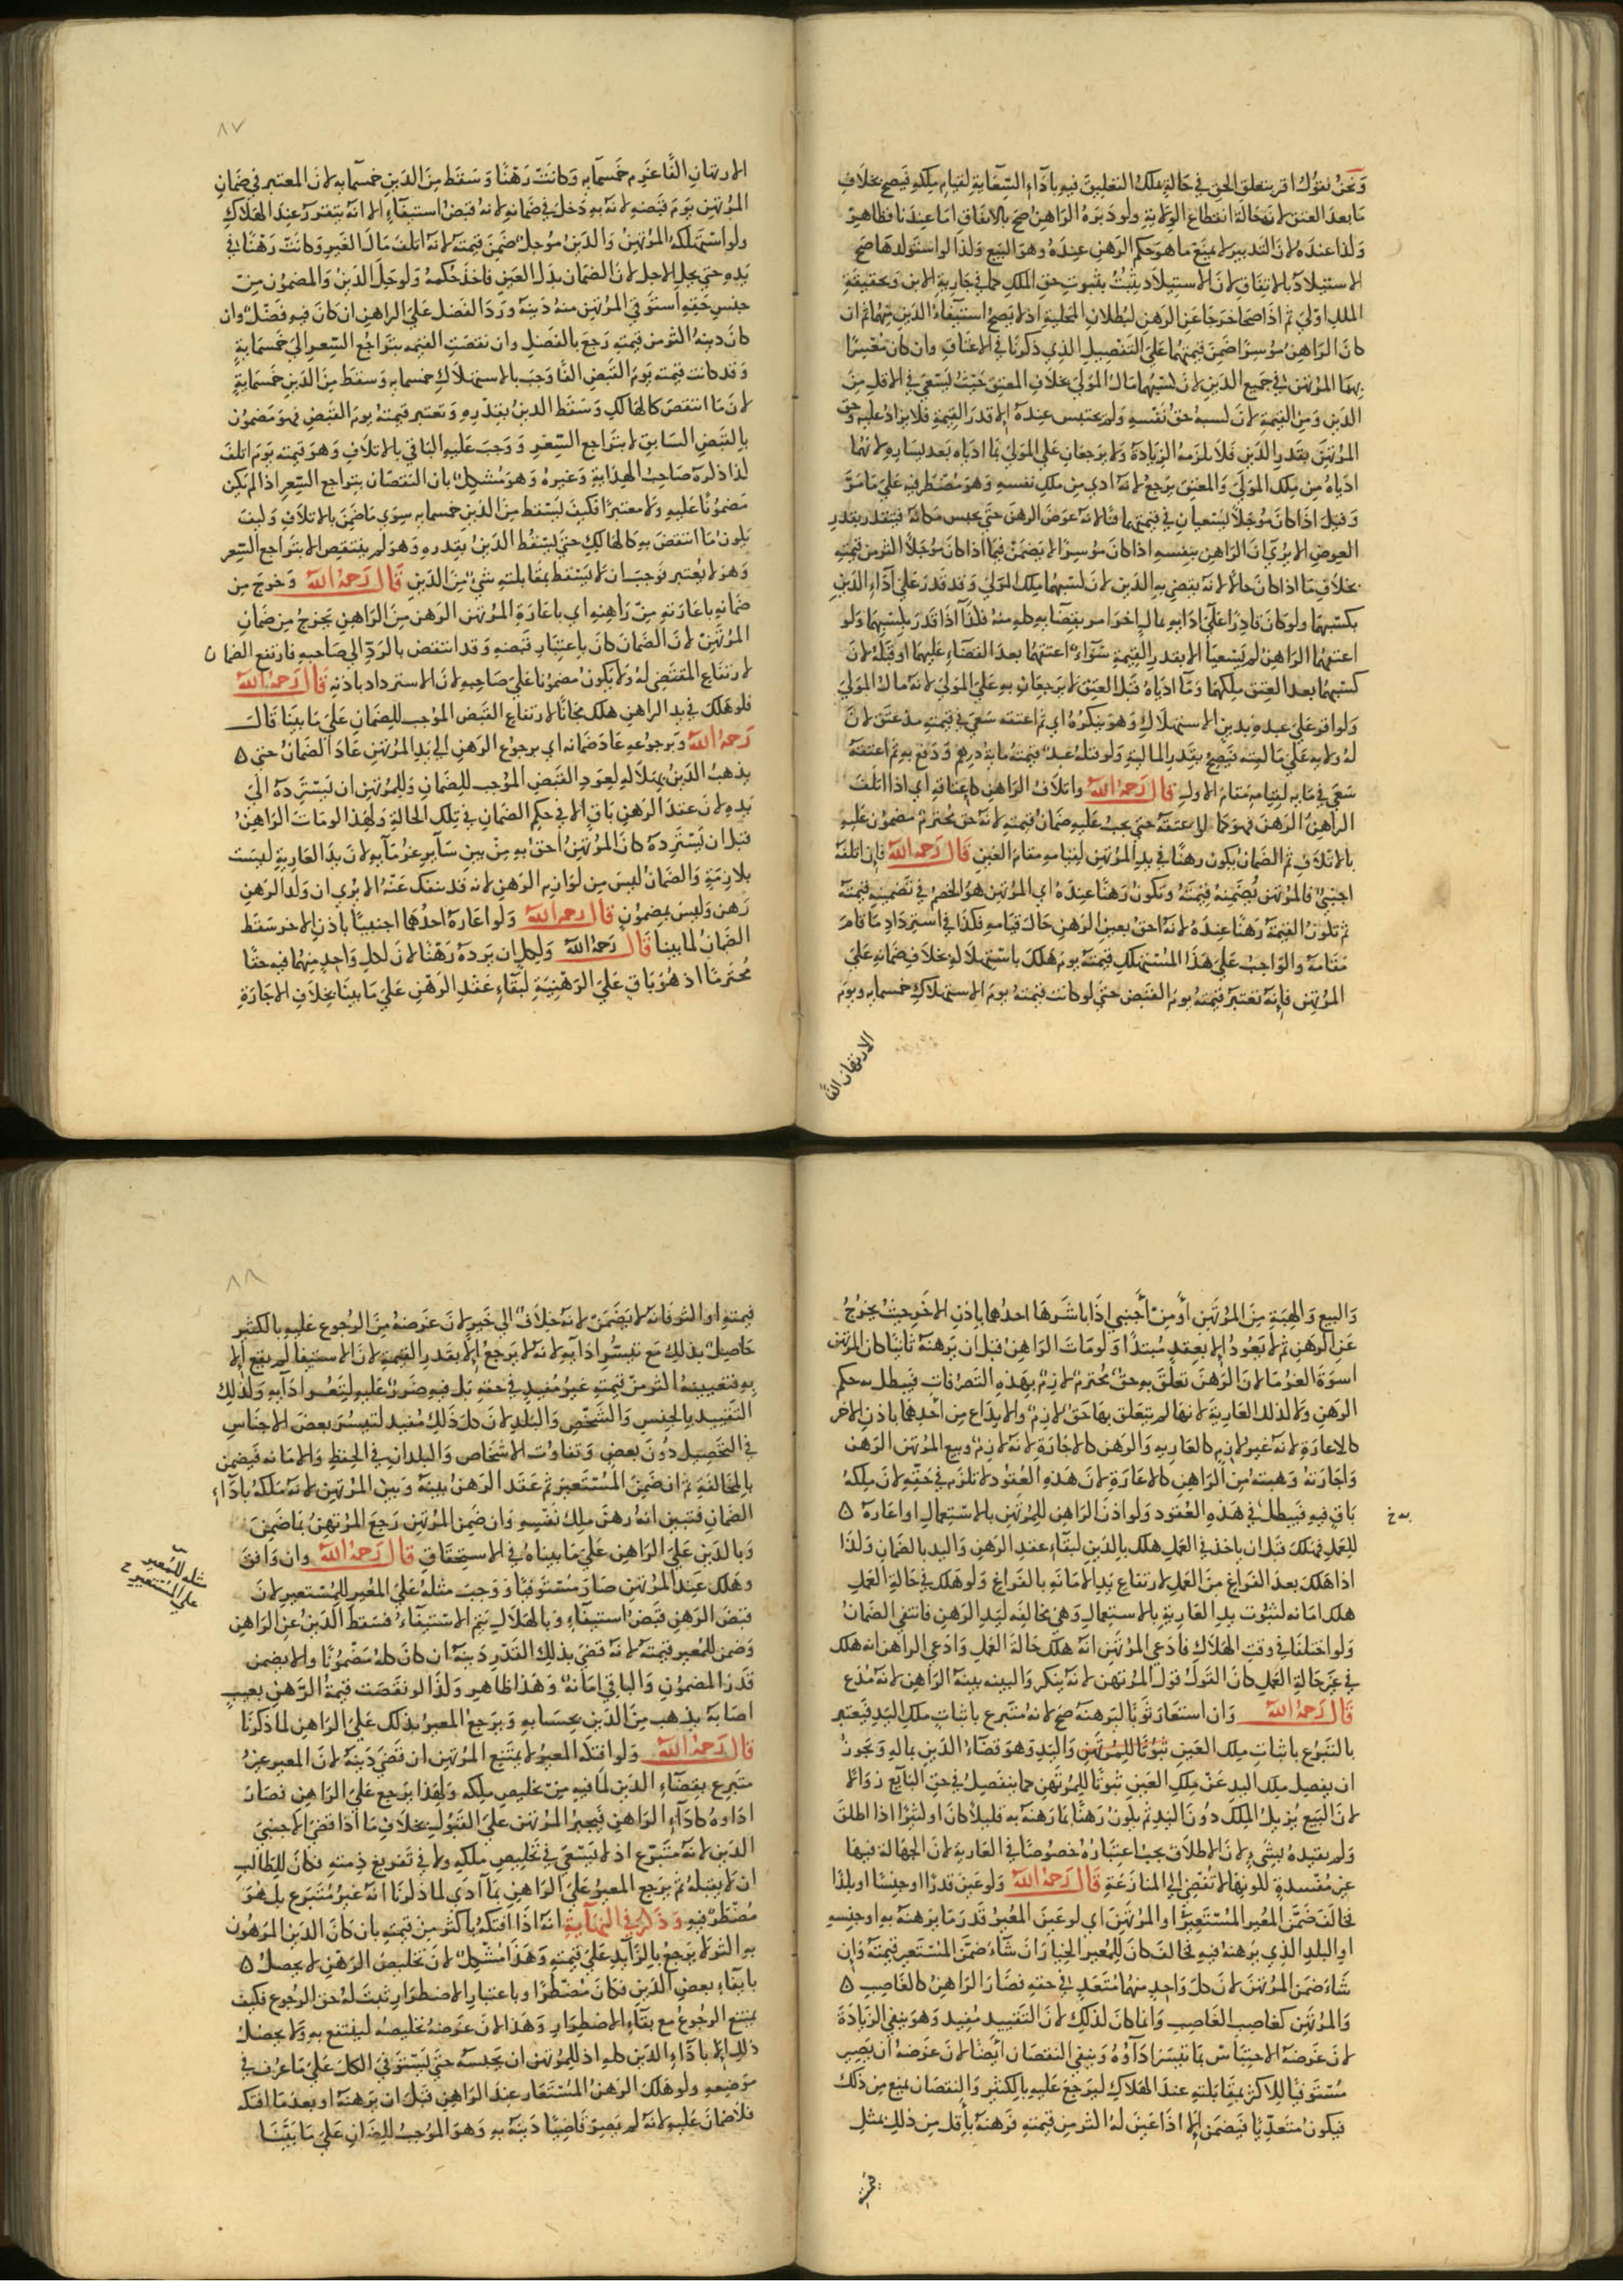 وَنحنُ نقول اقر بتعلق الحق في حالة ملك التعليق فيه بأداء السعاية لقيام ملكه فيصح بخلاف
ما بعد العتق لانها حالة انقطاع الولاية ولو دبره الراهن صح بالاتفاق اما عندنا فظاهر
وكذا عنده لان التدبير لا يمنع ما هو حكم الرهن عنده وهو البيع وكذا لو استولدها صح
الاستيلاد بالاتفاق لان الاستيلاد يثبت بثبوت حق الملك كما في جارية الابن وبحقيقة
الملك اولي ثم اذا صحا خرجا عن الرهن لبطلان المحلية اذ لا يصح استيفاء الدين منهما ثم ان
كان الراهن موسرا ضمن قيمتهما علي التفصيل الذي ذكرنا في الاعتاق وان كان معسرا
المرتهن في جميع الدين لان كسبهما مال المولي بخلاف المعتق حيث يسعي في الاقل من
الدين ومن القيمة لان كسبه حق نفسه ولم يحتبس عنده الا قدر القيمة فلا يزاد عليه وحق
المرتهن بقدر الدين فلا تلزمه الزيادة ولا يرجعان علي المولي بما ادياه بعد يساره لانهما
ادياه من ملك المولي والمعتق يرجع لانه ادي من ملك نفسه وهو مضطر فيه علي ما مر
وقيل اذا كان مؤجلا يسعيان في قيمتهما قنا لانه عوض الرهن حتي يحبس مكانه فيتقدر بقدر
العوض الا يري ان الراهن بنفسه اذا كان موسرا لا يضمن فيما اذا كان مؤجلا اكثر من قيمته
بخلاف ما اذا كان حالا لانه يقضي به الدين لان كسبهما ملك المولي وقد قدر علي اداء الدين
بكسبهما ولو كان قادرا علي ادائه بمال اخر امر بقضايه كله منه فكذا اذا قدر بكسبهما ولو
اعتقهما الراهن لم يسعيا الا بقدر القيمة سواء اعتقهما بعد القضاء عليهما او قبله لان
كسبهما بعد العتق ملكهما وما ادياه قبل العتق لا يرجعان به علي المولي لانه مال المولي
ولو اقر علي عبده بدين الاستهلاك وهو ينكره اي ثم اعتقه سعي في قيمته مذ عتق لان
له ولاية علي ماليته فيصح بقدر المالية ولو قتله عبد قيمته ماية درهم ودفع به ثم اعتقه
سعي في مايه لقيامه مقام الاول قال رحمه الله واتلاف الراهن كاعتاقه اي اذا اتلف
الراهن الرهن فهو كما لو اعتقه حتي يجب عليه ضمان قيمته لانه حق محترم مضمون عليه
بالاتلاف ثم الضمان يكون رهنا في يد المرتهن لقيامه مقام العين قال رحمه الله فان اتلفه
اجنبي فالمرتهن يضمنه قيمته وتكون رهنا عنده اي المرتهن هو الخصم في تضمينه قيمته
ثم تكون القيمة رهنا عنده لانه احق بعين الرهن حال قيامه فكذا في استرداد ما قام
مقامه والواجب علي هذا المستهلك قيمته يوم هلك باستهلاكه بخلاف ضمانه علي
المرتهن فانه تعتبر قيمته يوم القبض حتي لو كانت قيمته يوم الاستهلاك خمسمايه ويوم
الارتهان الفا
٨٧
الارتهان الفا غرم خمسمايه وكانت رهنا وسقط من الدين خمسمايه لان المعتبر في ضمان
المرتهن يوم قبضه لانه به دخل في ضمانه لانه قبض استيفاء الا انه يتقرر عند الهلاك
ولو استهلكه المرتهن والدين مؤجل ضمن قيمته لانه اتلف مال الغير وكانت رهنا في
يده حتي يحل الاجل لان الضمان بدل العين فاخذ حكمه ولو حل الدين والمضمون من
جنس حقه استوفي المرتهن منه دينه ورد الفضل علي الراهن ان كان فيه فضل وان
كان دينه اكثر من قيمته رجع بالفضل وان نقصت القيمه بتراجع السعر الي خمسماية
وقد كانت قيمته يوم القبض الفا وجب بالاستهلاك خمسمايه وسقط من الدين خمسماية
لان ما انتقص كالهالك وسقط الدين بقدره وتعتبر قيمته يوم القبض فهو مضمون
بالقبض السابق لا بتراجع السعر ووجب عليه الباقي بالاتلاف وهو قيمته يوم اتلف
كذا ذكره صاحب الهداية وغيره وهو مشكل بان النقصان بتراجع السعر اذا لم يكن
مضمونا عليه ولا معتبرا فكيف يسقط من الدين خمسمايه سوي ما ضمن بالاتلاف وكيف
يكون ما انتقص به كالهالك حتي يسقط الدين بقدره وهو لم ينتقص الا بتراجع السعر
وهو لا يعتبر فوجب ان لا يسقط بمقابلته شيء من الدين قال رحمه الله وخرج من
ضمانه باعارته من راهنه اي باعارة المرتهن الرهن من الراهن يخرج من ضمان
المرتهن لان الضمان كان باعتبار قبضه وقد انتقض بالرد الي صاحبه فارتفع الضمان
لارتفاع المقتضي له ولا يكون مضمونا علي صاحبه لان الاسترداد باذنه قال رحمه الله
فلو هلك في يد الراهن هلك مجانا لارتفاع القبض الموجب للضمان علي ما بينا قال
رحمه الله وبرجوعه عاد ضمانه اي برجوع الرهن الي يد المرتهن عاد الضمان حتي ٥
يذهب الدين بهلاكه لعود القبض الموجب للضمان وللمرتهن ان يسترده الي
يده لان عقد الرهن باق الا في حكم الضمان في تلك الحالة ولهذا لو مات الراهن
قبل ان يسترده كان المرتهن احق به من بين ساير غرمايه لان يد العارية ليست
بلازمة والضمان ليس من لوازم الرهن لانه قد ينفك عنه الا يري ان ولد الرهن
رهن وليس بمضمون قال رحمه الله ولو اعاره احدهما اجنبيا باذن الاخر سقط
الضمان لما بينا قال رحمه الله ولكل ان يرده رهنا لان لكل واحد منهما فيه حقا
محترما اذ هو باق علي الرهنية لبقاء عقد الرهن علي ما بينا بخلاف الاجارة
والبيع والهبة من المرتهن او من اجنبي اذا باشرها احدهما باذن الاخر حيث يخرج
عن الرهن ثم لا يعود الا بعقد مبتدا ولو مات الراهن قبل ان يرهنه ثانيا كان المرتهن
اسوة الغرما لان الرهن تعلق به حق محترم لازم بهذه التصرفات فيبطل به حكم
الرهن ولا كذلك العارية لانها لم يتعلق بها حق لازم والايداع من احدهما باذن الاخر
كالاعارة لانه غير لازم كالعاريه والرهن كالاجارة لانه لازم وبيع المرتهن الرهن
واجارته وهبته من الراهن كالاعارة لان هذه العقود لا تلزم في حقه لان ملكه
باق فيه فيبطل في هذه العقود ولو اذن الراهن للمرتهن بالاستعمال او اعاره ٥
للعمل فهلك قبل ان ياخذ في العمل هلك بالدين لبقاء عقد الرهن واليد بالضمان وكذا
اذا هلك بعد الفراغ من العمل لارتفاع يد الامانه بالفراغ ولو هلك في حالة العمل
هلك امانه لثبوت يد العارية بالاستعمال وهي مخالفه ليد الرهن فانتفي الضمان
ولو اختلفا في وقت الهلاك فادعي المرتهن انه هلك حالة العمل وادعي الراهن انه هلك
في غير حالة العمل كان القول قول المرتهن لانه ينكر والبينه بينة الراهن لانه مدع
قال رحمه الله وان استعار ثوبا ليرهنه صح لانه متبرع باثبات ملك اليد فيعتبر
بالتبرع باثبات ملك العين ثبوتا للمرتهن واليد وهو قضاء الدين بماله ويجوز
ان ينفصل ملك اليد عن ملك العين ثبوتا للمرتهن كما ينفصل في حق البايع زوالا
لان البيع يزيل الملك دون اليد ثم يكون رهنا بما رهنه به قليلا كان او كثيرا اذا اطلق
ولم يقيده بشيء لان الاطلاق يجب اعتباره خصوصا في العارية لان الجهالة فيها
غير مفسدة لكونها لا تفضي الي المنازعة قال رحمه الله ولو عين قدرا او جنسا او بلدا
فخالف ضمن المعير المستعير او المرتهن اي لو عين المعير قدر ما يرهنه به او جنسه
او البلد الذي يرهنه فيه فخالف كان للمعير الخيار ان شاء ضمن المستعير قيمته وان
شاء ضمن المرتهن لان كل واحد منهما متعد في حقه فصار الراهن كالغاصب ٥
والمرتهن كغاصب الغاصب وانما كان كذلك لان التقييد مفيد وهو ينفي الزيادة
لان غرضه الاحتباس بما تيسر اداؤه وينفي النقصان ايضا لان غرضه ان يصير
مستوفيا للاكثر بمقابلته عند الهلاك ليرجع عليه بالكثير والنقصان يمنع من ذلك
فيكون متعديا فيضمن الا اذا عين له اكثر من قيمته فرهنه باقل من ذلك بمثل
قيمته
٨٨
قيمته او اكثر فانه لا يضمن لانه خلاف الي خير لان غرضه من الرجوع عليه بالكثير
حاصل بذلك مع تيسر ادايه لانه لا يرجع الا بقدر القيمة لان الاستيفا لم يقع الا
به فتعيينه اكثر من قيمته غير مفيد في حقه بل فيه ضرر عليه لتعسر ادايه وكذلك
التقييد بالجنس والشخص والبلد لان كل ذلك مفيد لتيسر بعض الاجناس
في التحصيل دون بعض وتفاوت الاشخاص والبلدان في الحفظ والامانه فيضمن
بالمخالفة ثم ان ضمن المستعير تم عقد الرهن بينه وبين المرتهن لانه ملكه باداء
الضمان فتبين انه رهن ملك نفسه وان ضمن المرتهن رجع المرتهن بما ضمن
وبالدين علي الراهن علي ما بيناه في الاستحقاق قال رحمه الله وان وافق
وهلك عند المرتهن صار مستوفيا ووجب مثله علي المعير للمستعير لان
مثله للمعير
علي المستعير
قبض الرهن قبض استيفاء وبالهلاك يتم الاستيفاء فسقط الدين عن الراهن
وضمن للمعير قيمته لانه قضي بذلك القدر دينه ان كان كله مضمونا والا يضمن
قدر المضمون والباقي امانة وهذا ظاهر وكذا لو نقصت قيمة الرهن بعيب
اصابه يذهب من الدين بحسابه ويرجع المعير بذلك علي الراهن لما ذكرنا
قال رحمه الله ولو افتكه المعير لا يمتنع المرتهن ان قضي دينه لان المعير غير
متبرع بقضاء الدين لما فيه من تخليص ملكه ولهذا يرجع علي الراهن فصار
اداوه كاداء الراهن فيجبر المرتهن علي القبول بخلاف ما اذا قضي الاجنبي
الدين لانه متبرع اذ لا يسعي في تخليص ملكه ولا في تفريغ ذمته فكان للطالب
ان لا يقبله ثم يرجع المعير علي الراهن بما ادي لما ذكرنا انه غير متبرع بل هو
مضطر فيه وذكر في النهاية انه اذا افتكه باكثر من قيمته بان كان الدين المرهون
به اكثر لا يرجع بالزايد علي قيمته وهذا مشكل لان تخليص الرهن لا يحصل ٥
بايفاء بعض الدين فكان مضطرا وباعتبار الاضطرار ثبت له حق الرجوع فكيف
يمتنع الرجوع مع بقاء الاضطرار وهذا لان غرضه تخليصه لينتفع به ولا يحصل
ذلك الا باداء الدين كله اذ للمرتهن ان يحبسه حتي يستوفي الكل علي ما عرف في
موضعه ولو هلك الرهن المستعار عند الراهن قبل ان يرهنه او بعد ما افتكه
فلا ضمان عليه لانه لم يصر قاضيا دينه به وهو الموجب للضمان علي ما بينا